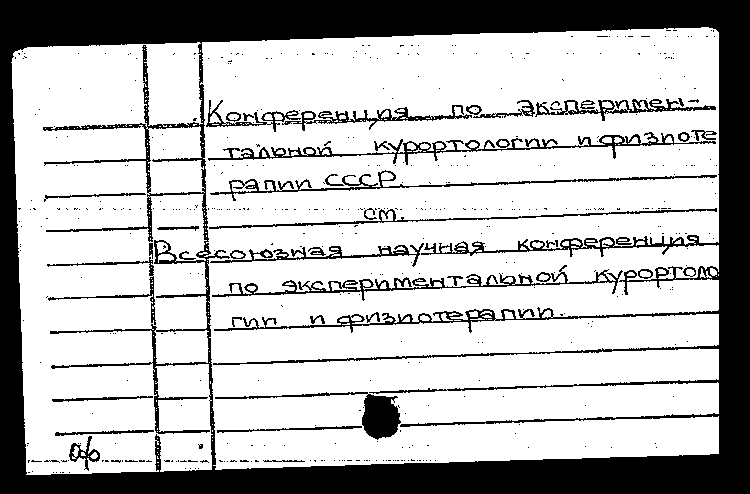 Конференция по эксперимен-
тальной курортологии и физиоте
рапии СССР.
см.
Всесоюзная научная конференция
по экспериментальной курортоло
гии и физиотерапии.